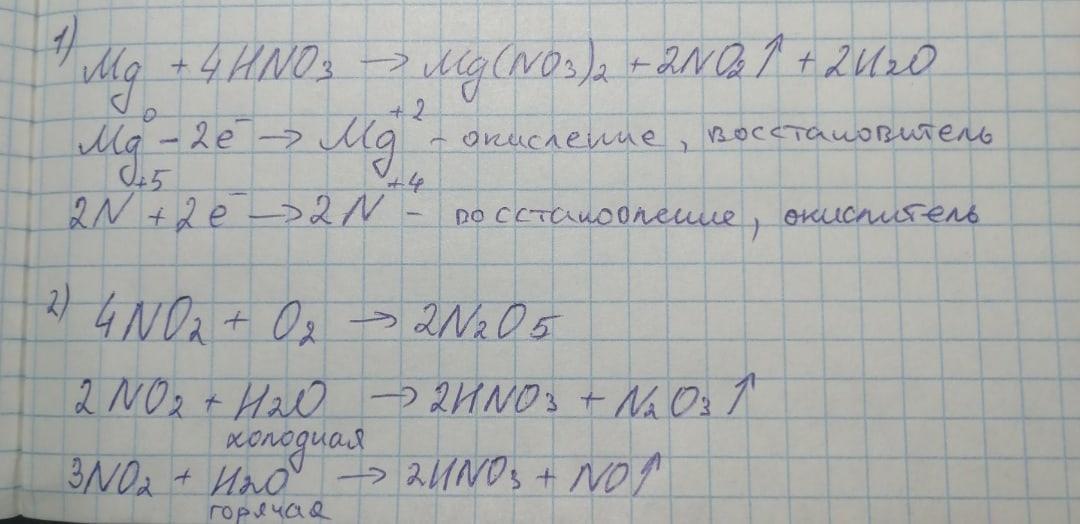 1) Mg + 4HNO₃ → Mg(NO₃)₂ + 2NO₂↑ + 2H₂O
Mg⁰ - 2e⁻ → Mg⁺² - окисление, восстановитель
2N⁺⁵ + 2e⁻ → 2N⁺⁴ - восстановление, окислитель
2) 4NO₂ + O₂ → 2N₂O₅
2NO₂ + H₂O → 2HNO₃ + N₂O₃↑
холодная
3NO₂ + H₂O → 2HNO₃ + NO↑
горячая